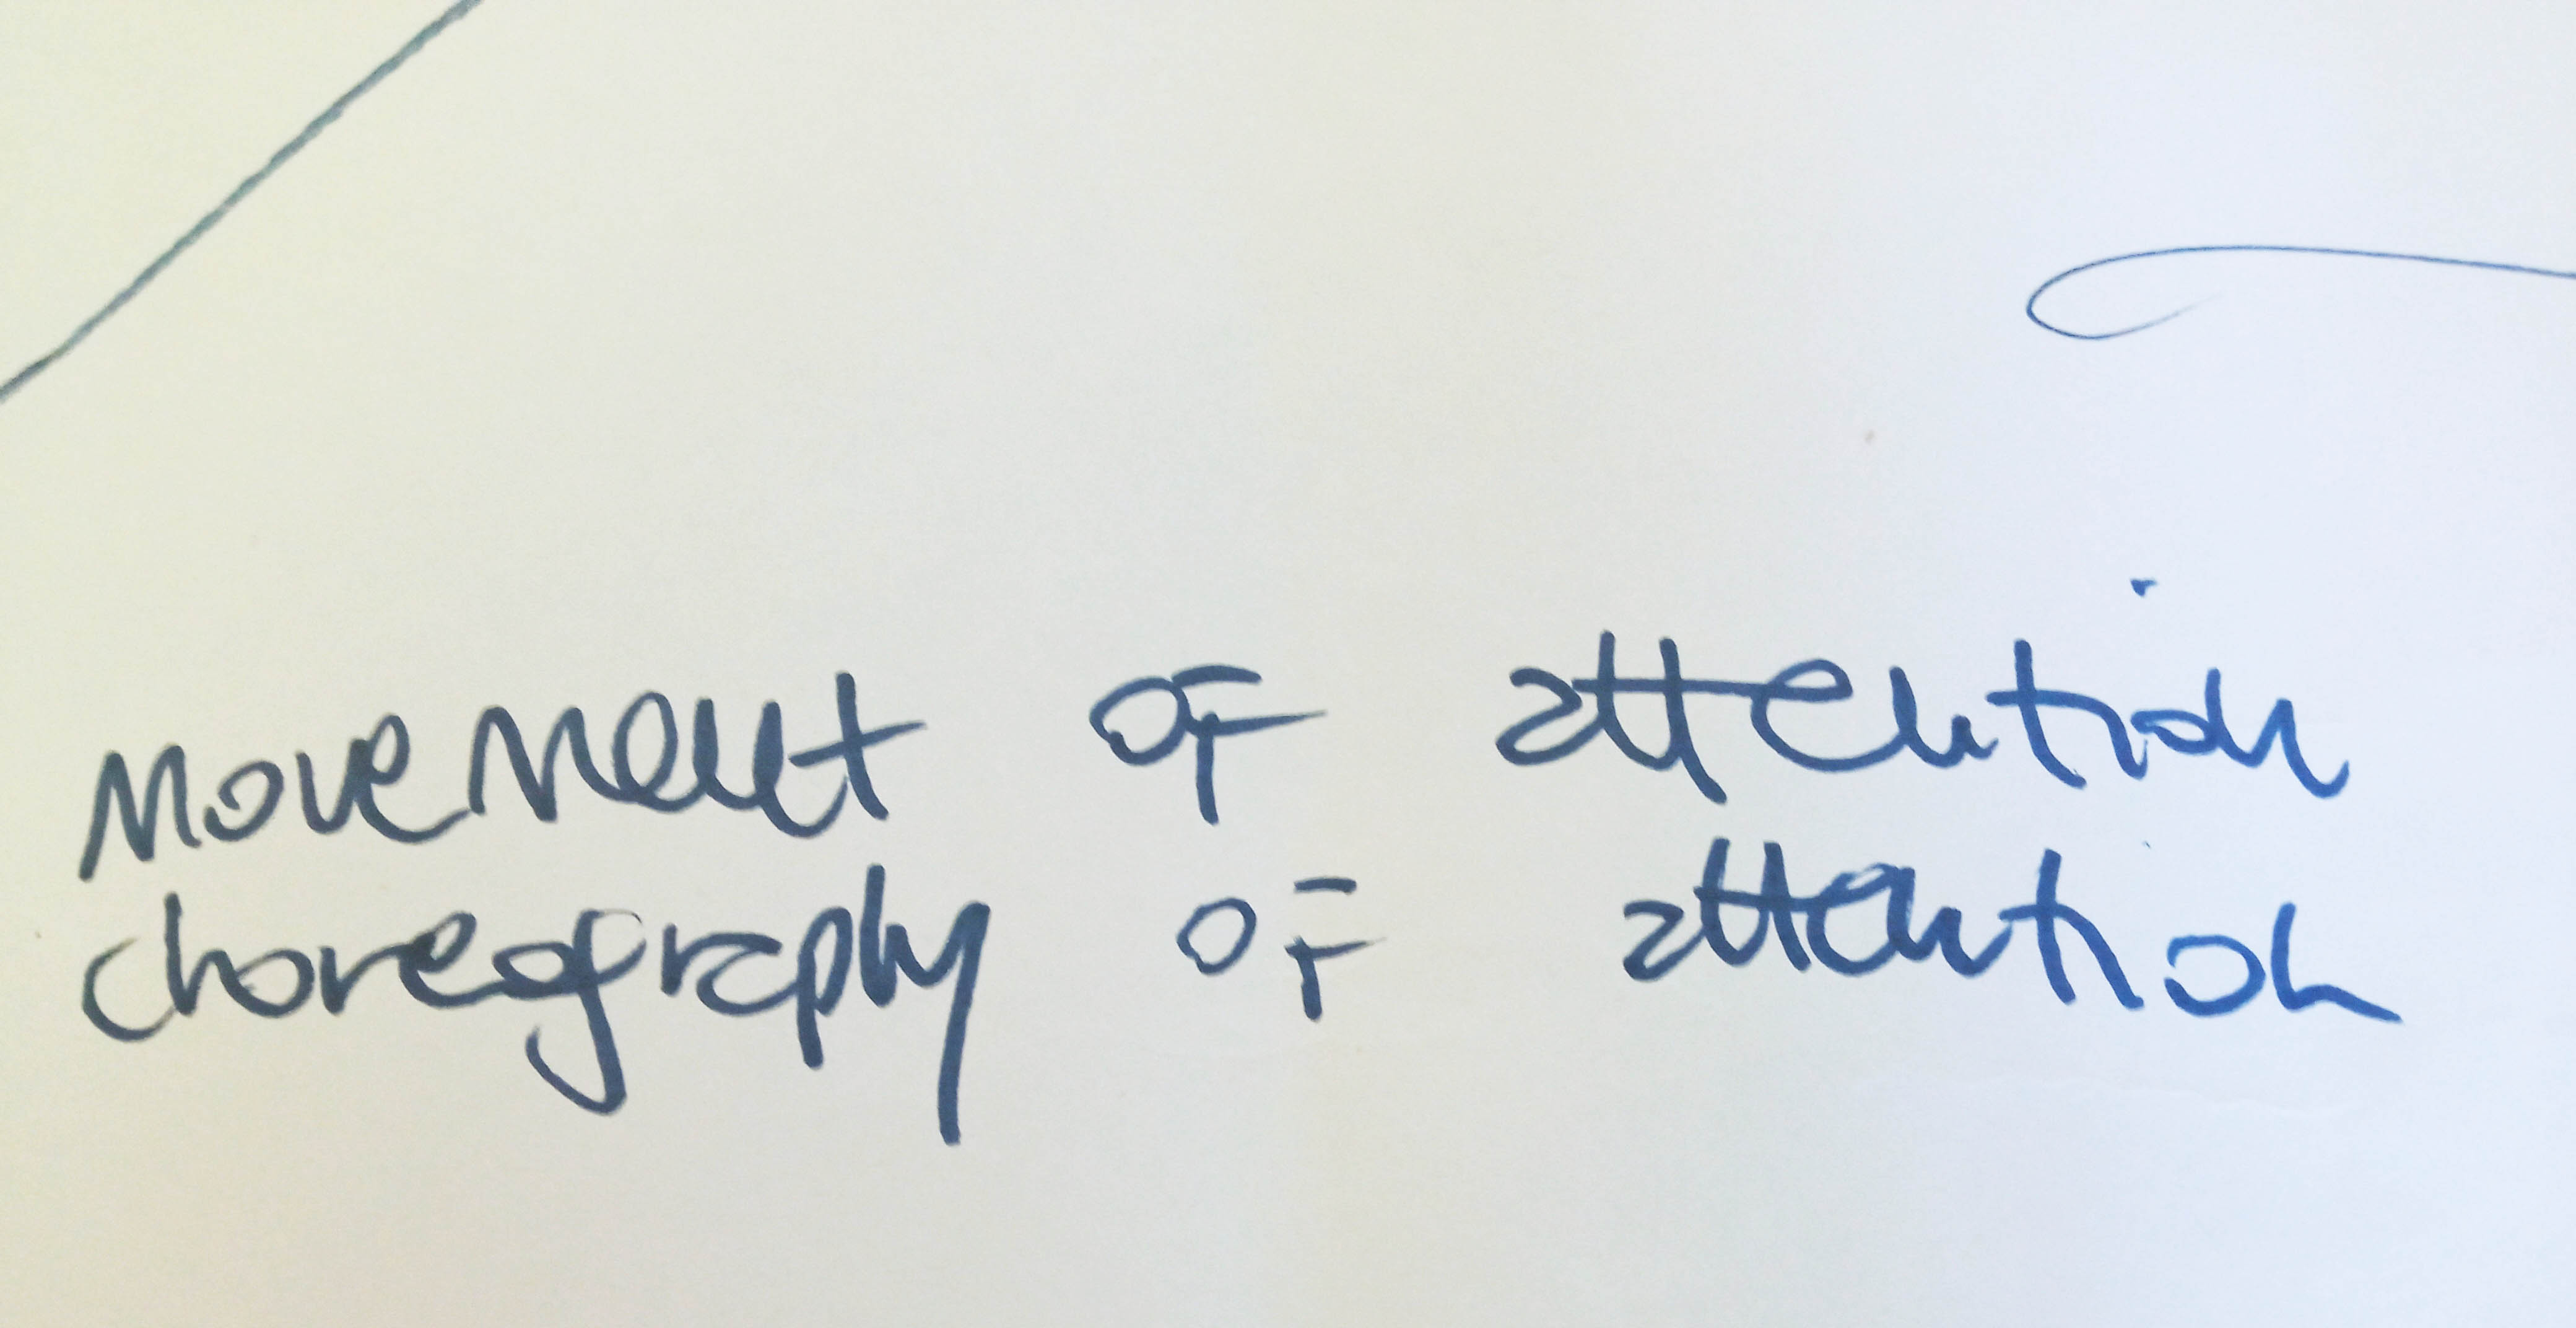 Movement of attention
choregraphy of attention